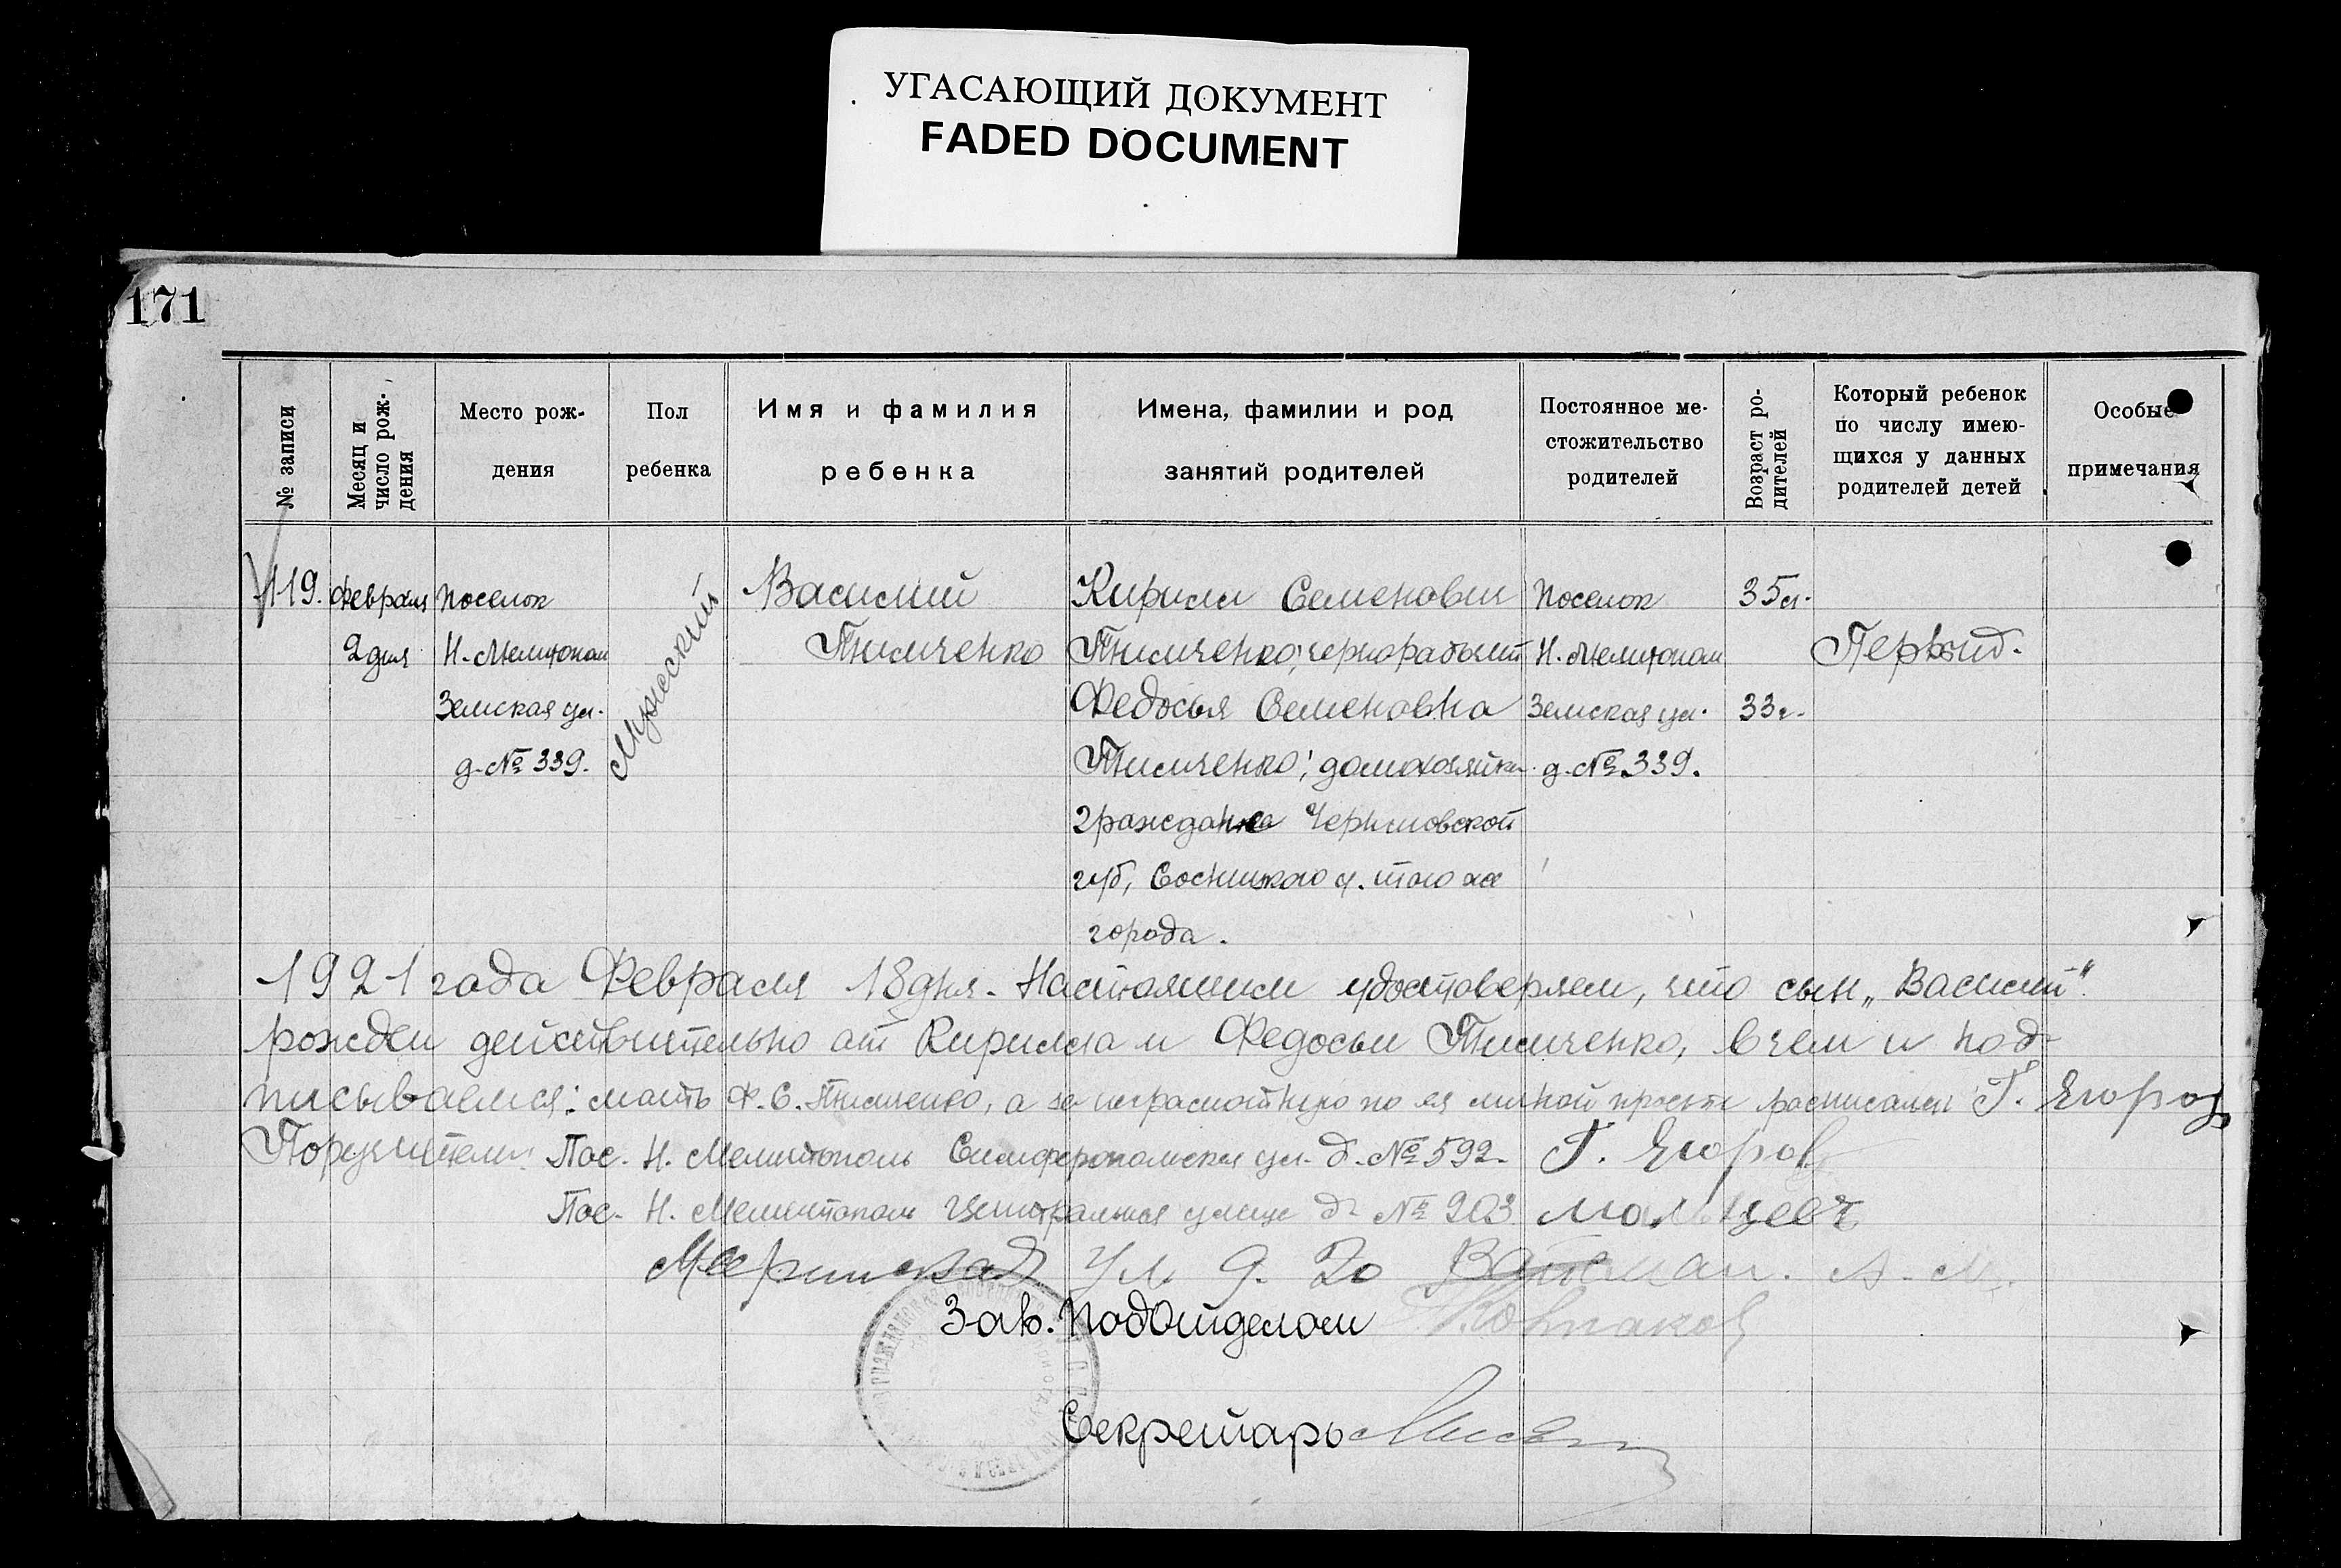 УГАСАЮЩИЙ ДОКУМЕНТ
FADED DOCUMENT
171
№ записи
Месяц и число рож-дения
Место рож-
дения
Пол
ребенка
Имя и фамилия
ребенка
Имена, фамилии и род
занятий родителей
Постоянное ме-
стожительство
родителей
Возраст ро-дителей
Который ребенок
по числу имею-
щихся у данных
родителей детей
Особые
примечания
119. Февраля поселок Мужеский Василий Кирилл Семенович Поселок 35л.
2 дня Н.-Мелитополь Тимченко Тимченко, чернорабочий Н.-Мелитополь Первый.
Земская ул. Федосья Семеновна Земская ул. 33г.
д. № 339. Тимченко, домохозяйка д. № 339.
граждане Черниговской
губ, Сосницкого у. того же
города.
1921 года Февраля 18 дня. Настоящим удостоверяем, что сын „Василий"
рожден действительно от Кирилла и Федосьи Тимченко, в чем и под-
писываемся: мать Ф. С. Тимченко, а за неграмотную по ея личной просьбе расписался Г. Егоров
Поручители: Пос. Н. Мелитополь Симферопольская ул. д. № 592. Г. Егоров
Пос. Н. Мелитополь Центральная улица д. № 203 Мальцевъ
ул. д. 20
Зав. Подотделом
Секретарь